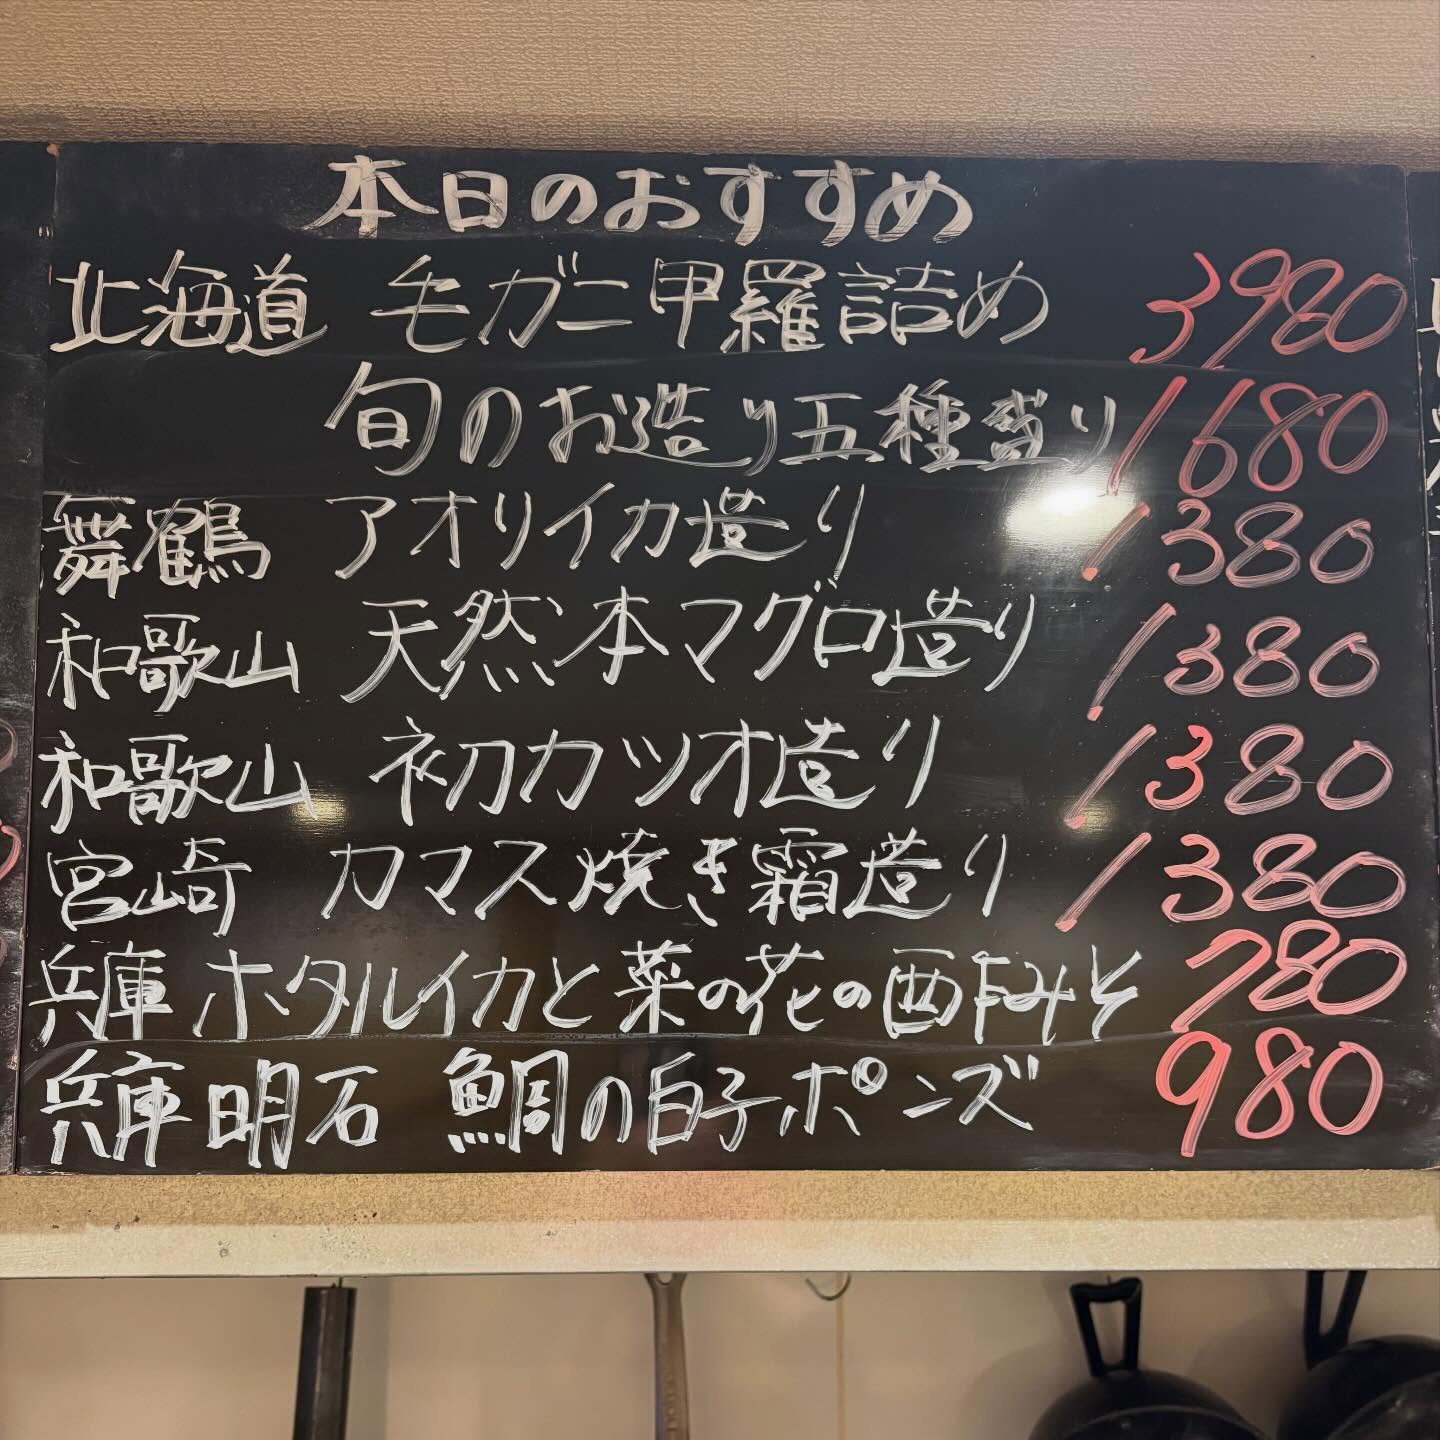 本日のおすすめ
北海道 毛ガニ甲羅詰め 3980
旬のお造り五種盛り 1680
舞鶴 アオリイカ造り 1380
和歌山 天然本マグロ造り 1380
和歌山 初カツオ造り 1380
宮崎 カマス焼き霜造り 1380
兵庫 ホタルイカと菜の花の酢みそ 780
兵庫明石 鯛の白子ポン酢 980